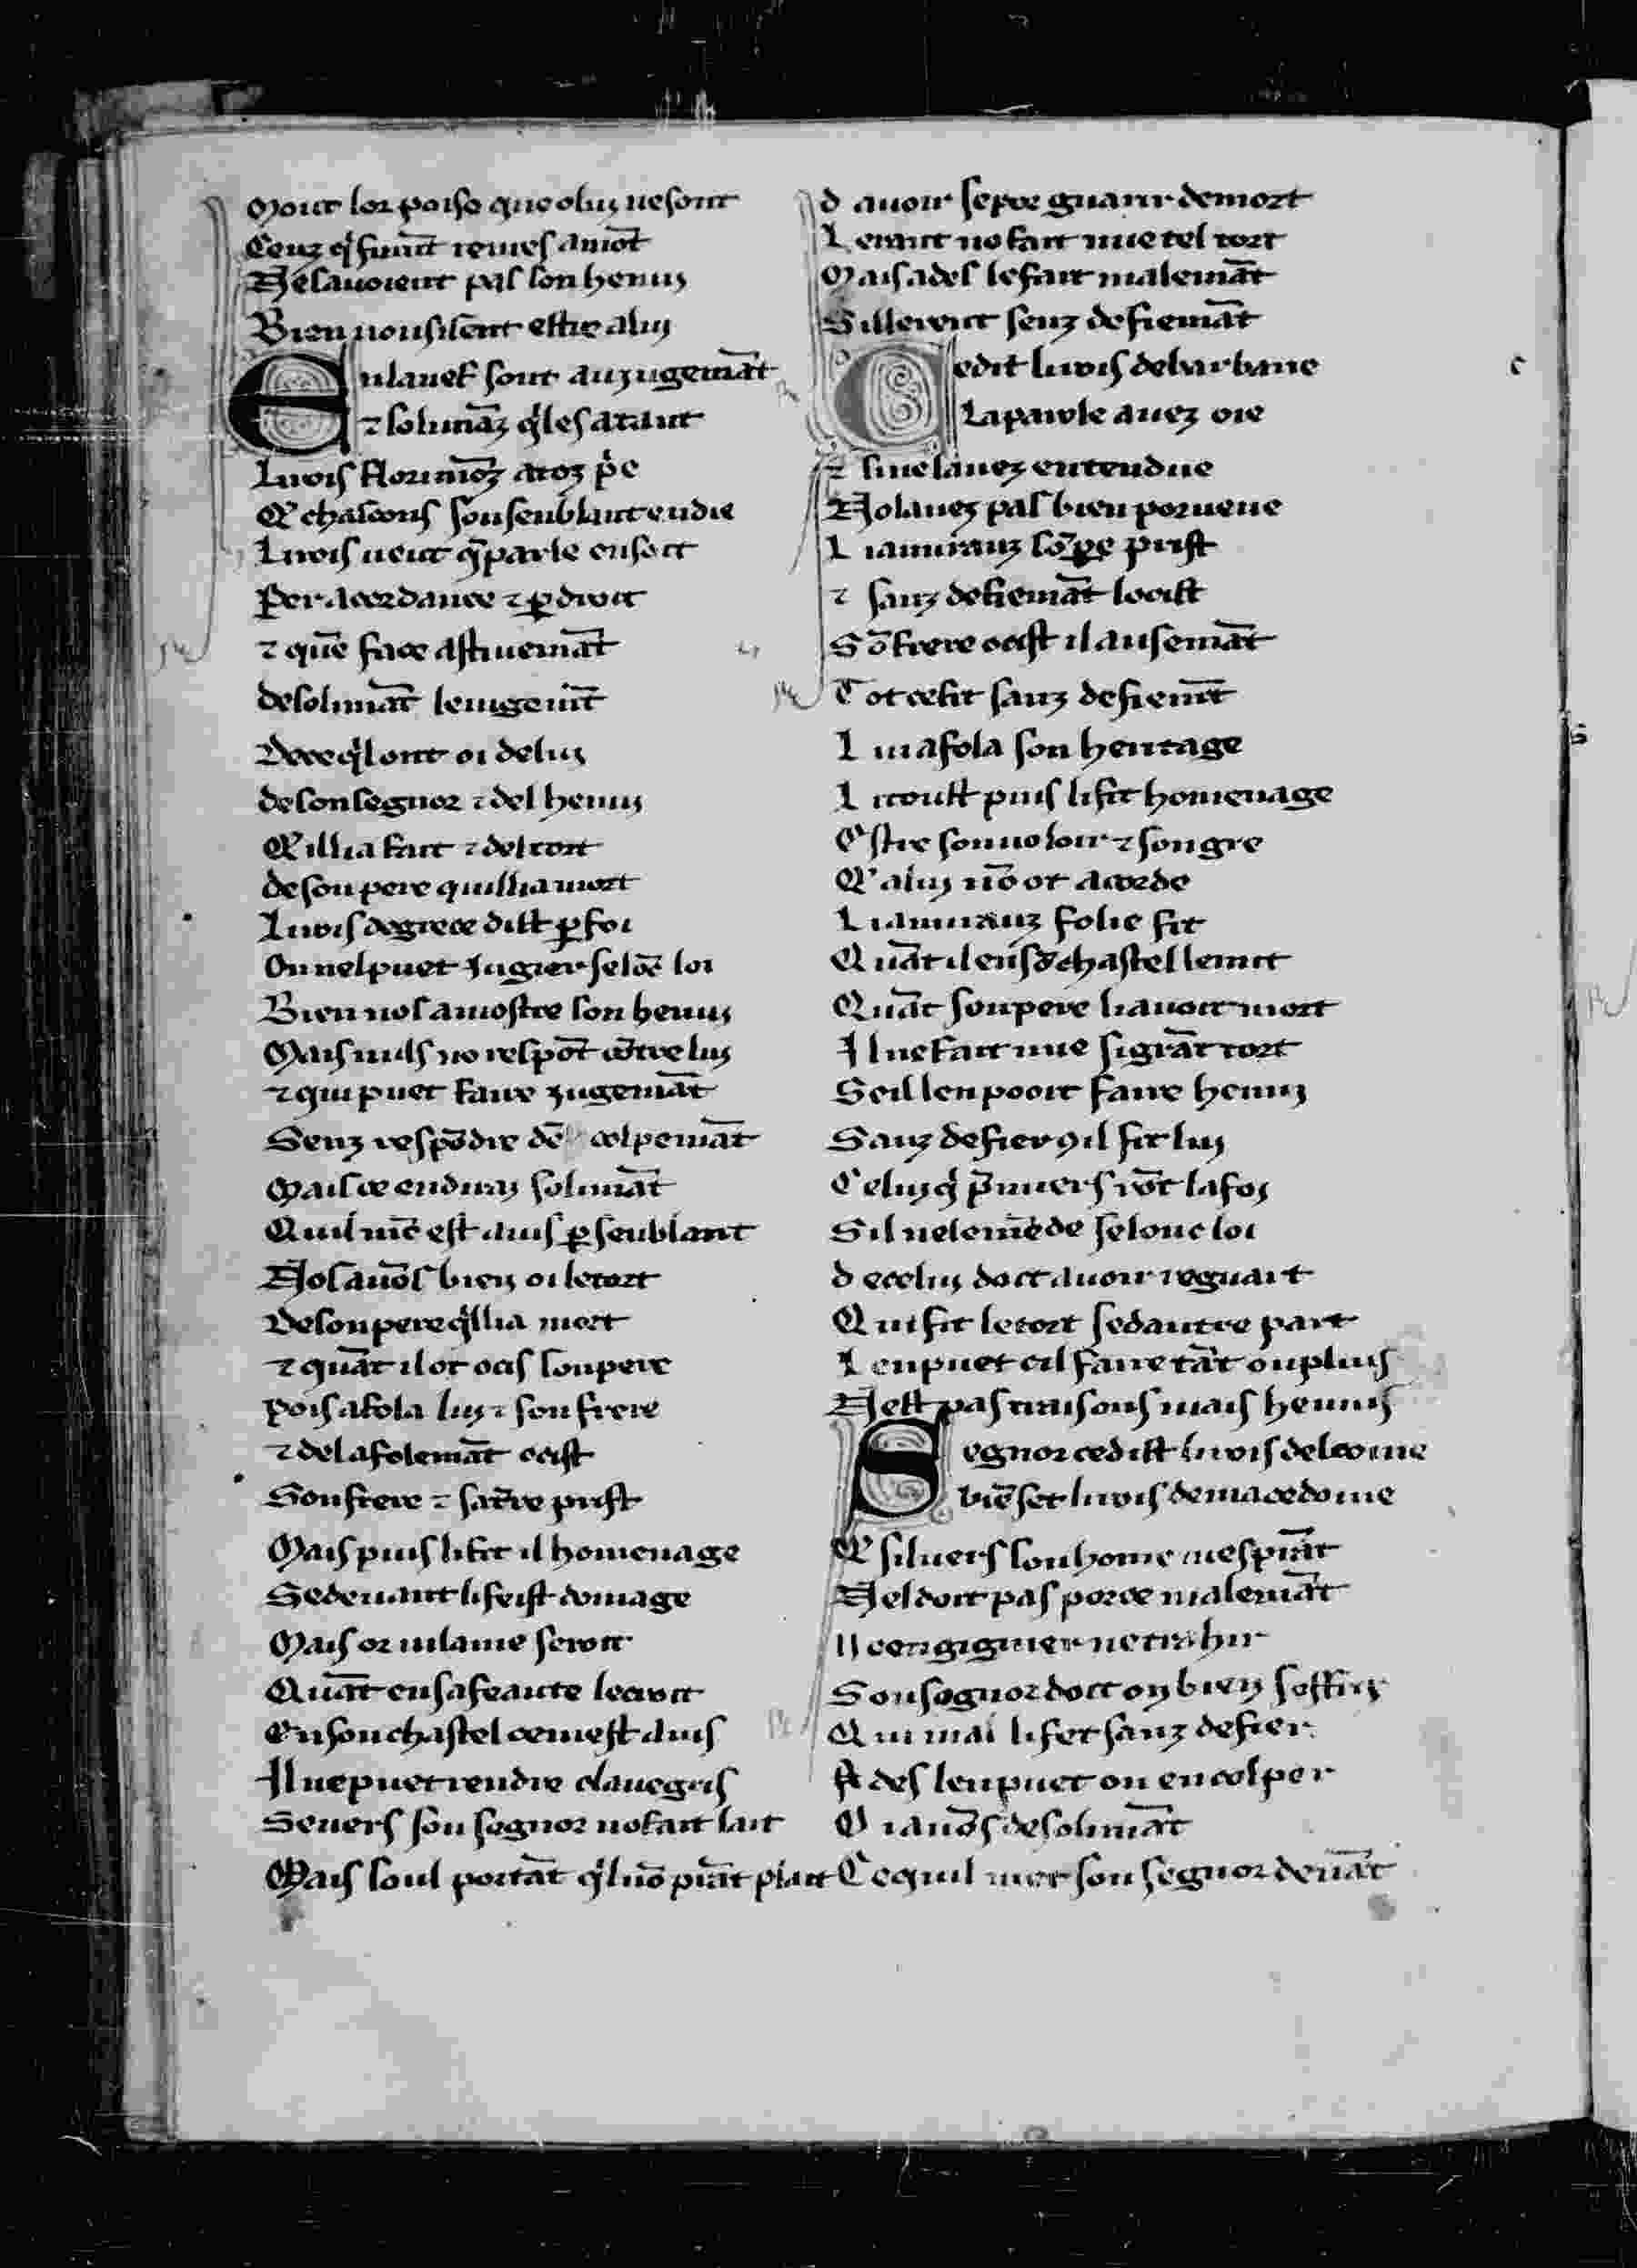 Mout lor poise que o luy ne sont
Ceuz q̾ furēt remes amōt
Ne sauoient pas son henuy
Bien uousisent estre a luy
En la nef sont au zugemāt
⁊ solimāz q̾ les atant
Li rois florimōz a toz p̾e
Q' chascons son senblant en die
Li rois ueut q̄ parle en soit
Per acordance ⁊ ꝑ droit
⁊ quē face astiuemāt
de solimāt le iugem̄t
De ce q̾l ont oi de luy
de son segnor ⁊ del henuy
Q' il li a fait ⁊ del tort
de son pere qui lli a mort
Li rois de grece dist ꝑ foi
On nel puet zugier selōc loi
Bien nos a mostre son henuy
Mais nuls no respōt cōtre luy
⁊ qui puet faire zugemāt
Senz respōdre dē colpemāt
Mais ce en diray solimāt
Qui mē est auis ꝑ senblant
Nos auōs bien oi le tort
De son pere q̾lli a mort
⁊ quāt il ot ocis son pere
Pois afola luy ⁊ son frere
⁊ del afolemāt ocist
Son frere ⁊ sa t̄re prist
Mais puis li fit il homenage
Se deuant li feist domage
Mais or uilanie seroit
Quāt en sa feaute lecroit
En son chastel ce mest auis
Il ne puet rendre claue gris
Se uers son segnor no fait lait
Mais soul portāt q̾ luō priāt plait
d auoir se poe guarir de mort
L enuit no fait mie tel tort
Mais ades le fait malemāt
S il lerent senz defiemāt
Ce dit li rois de barbarie
La parole auez oie
⁊ si ne lauez entendue
No lauez pas bien porueue
L i amirauz sō pe prist
⁊ sanz defiemāt locist
Sō frere ocist il ausemāt
Tot ce fit sanz defiem̄t
L ui afola son heritage
I troust puis li fit homenage
Estre son uoloir ⁊ son gre
Q' a luy nō ot acorde
L i amirauz folie fit
Quāt il en sō chastel le mit
Quāt son pere li auoit mort
Il ne fait mie si grāt tort
Se il len pooit faire henuy
Sanz defier ꝯ il fit luy
Celuy q̾ p̄miers rōt la foy
S il nel emēde selonc loi
d e celuy doit auoir reguart
Qui fit le tort se dautre part
L en puet cil faire tāt ou pluis
Nest pas traisons mais henuis
Segnor ce dist li rois de leome
biē set li rois de macedoine
Q' si luers son home mesprāt
Nel doit pas por ce malemāt
N e engignier ne trahir
Son segnor doit on bien soffrir
Qui mal li fet sanz defier
Ades len puet on encolper
O i auōs de solimāt
Ce quil met son segnor deuāt